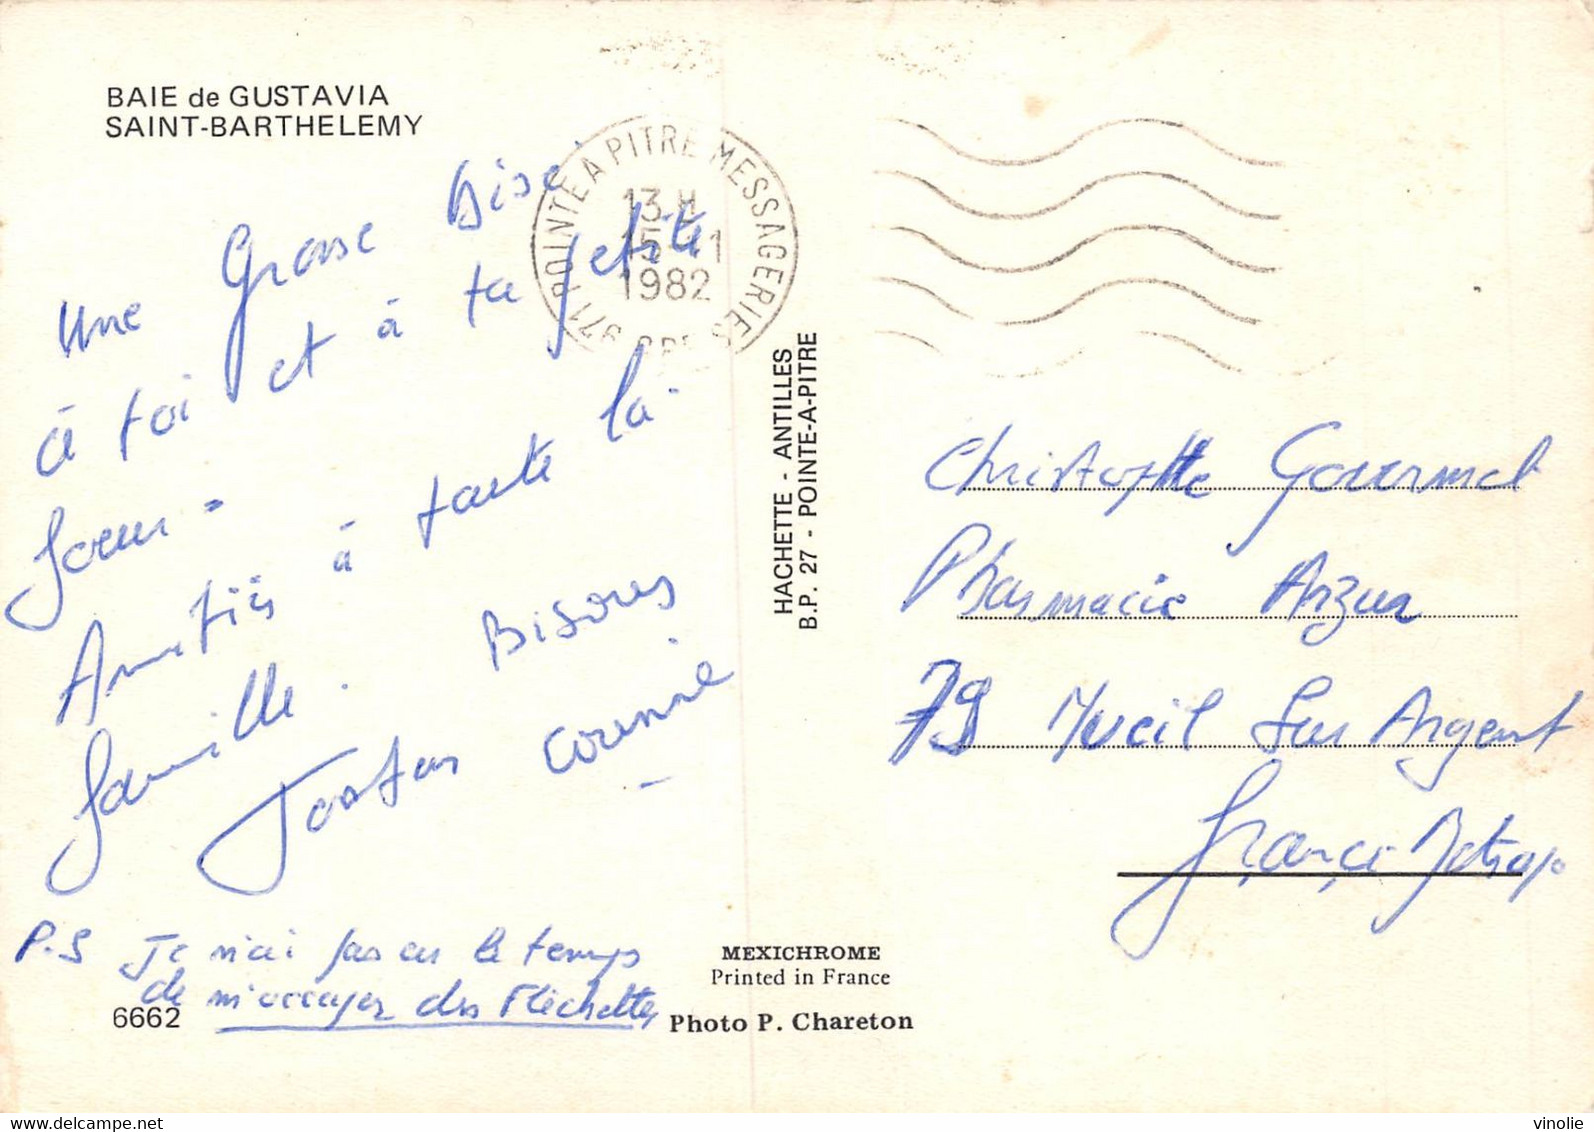 BAIE de GUSTAVIA
SAINT-BARTHELEMY
Une Grosse Bise
à toi et à ta petite
soeur.
Amitiés à toute la
famille. Bisous
Corinne
P.S Je n'ai pas eu le temps
de m'occuper des fléchettes
6662
971 POINTE A PITRE MESSAGERIES
13 H
15 11
1982
HACHETTE - ANTILLES
B.P. 27 - POINTE-A-PITRE
Christophe Gourmel
Pharmacie Anzur
79 Sur Argent
France Métropo
MEXICHROME
Printed in France
Photo P. Chareton
delcampe.net
vinolie